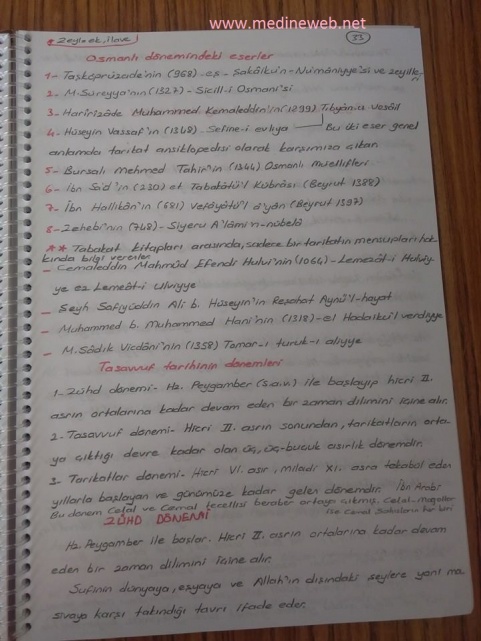 www.medineweb.net
* Zeyl=ek, ilave
33
Osmanlı dönemindeki eserler
1- Taşköprüzade'nin (968) eş-Şakâiku'n-Nu'mâniyye'si ve zeyilleri
2- M. Süreyya'nın (1327) Sicill-i Osmanî'si
3- Harîrîzâde Muhammed Kemaleddin'in (1299) Tıbyânü Vesâil
4- Hüseyin Vassaf'ın (1348) Sefine-i evliya Bu iki eser genel
anlamda tarikat ansiklopedisi olarak karşımıza çıkar
5- Bursalı Mehmed Tahir'in (1344) Osmanlı müellifleri
6- İbn Sa'd'ın (230) et Tabakâtü'l Kübrâsı (Beyrut 1388)
7- İbn Hallikân'ın (681) Vefâyâtü'l a'yân (Beyrut 1397)
8- Zehebi'nin (748) - Siyeru A'lâmi'n-nübelâ
** Tabakat kitapları arasında, sadece bir tarikatın mensupları hak-
kında bilgi verenler
- Cemaleddin Mahmûd Efendi Hulvi'nin (1064) - Lemezât-ı Hulviy-
ye ez Lemeât-i Ulviyye
- Şeyh Safiyüddin Ali b. Hüseyin'in Reşahat Aynü'l-hayat
- Muhammed b. Muhammed Hani'nin (1318) - el Hadaiku'l verdiyye
- M. Sâdık Vicdâni'nin (1358) Tomar-ı turuk-ı aliyye
Tasavvuf tarihinin dönemleri
1- Zühd dönemi - Hz. Peygamber (s.a.v.) ile başlayıp hicri II.
asrın ortalarına kadar devam eden bir zaman dilimini içine alır.
2- Tasavvuf dönemi - Hicri II. asrın sonundan, tarikatların orta-
ya çıktığı devre kadar olan üç, üç-buçuk asırlık dönemdir.
3- Tarikatlar dönemi - Hicri VI. asır, miladi XI. asra tekabül eden
yıllarla başlayan ve günümüze kadar gelen dönemdir. İbn Arabi
Bu dönem Celal ve Cemal tecellisi beraber ortaya çıkmış. Celal-
ile Cemal
ZÜHD DÖNEMİ
Hz. Peygamber ile başlar. Hicri II. asrın ortalarına kadar devam
eden bir zaman dilimini içine alır.
Sufinin dünyaya, eşyaya ve Allah'ın dışındaki şeylere yani ma-
sivaya karşı takındığı tavrı ifade eder.